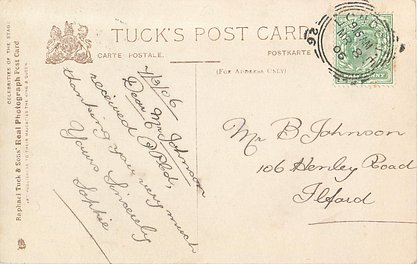 TUCK'S POST CARD
CARTE POSTALE.
POSTKARTE
(FOR ADDRESS ONLY)
CELEBRITIES OF THE STAGE
Raphael Tuck & Sons' Real Photograph Post Card
26
06
Dear Mr Johnson
received P.Card,
thanking you very much
Yours Sincerely
Sophie
Mr B Johnson
106 Henley Road
Ilford